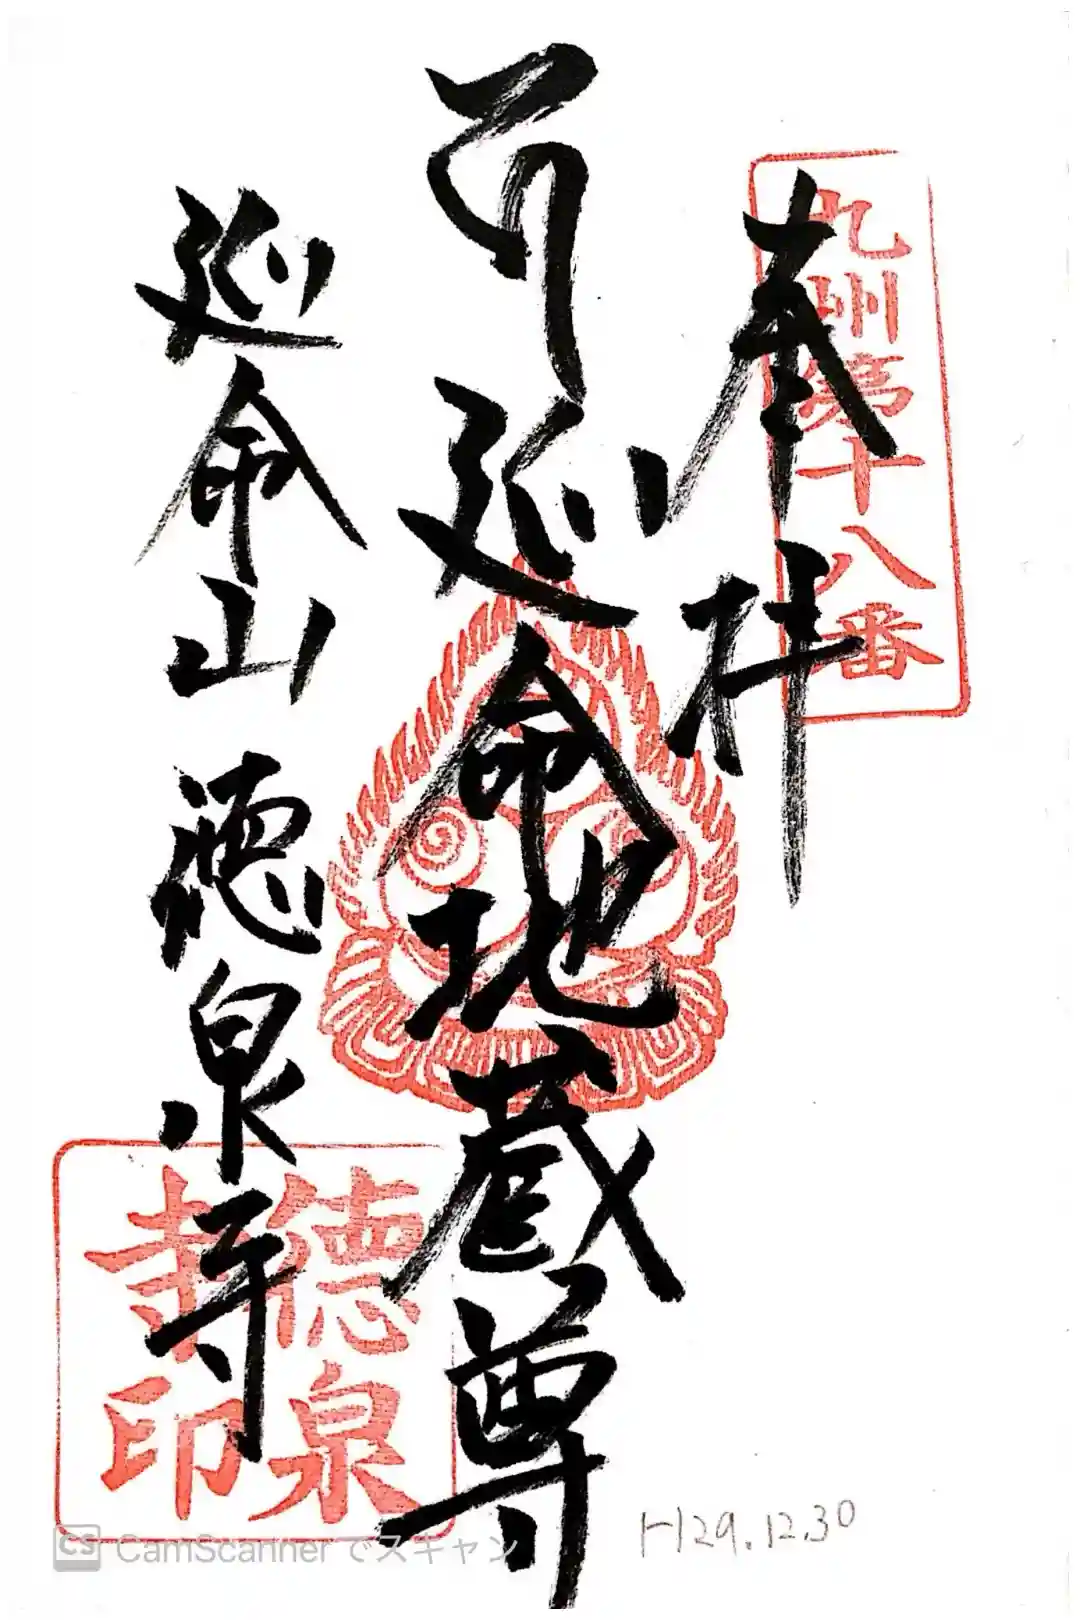 九州第十八番
奉拝
延命地蔵尊
延命山 徳泉寺
徳泉寺印
H29.12.30
CS CamScannerでスキャン